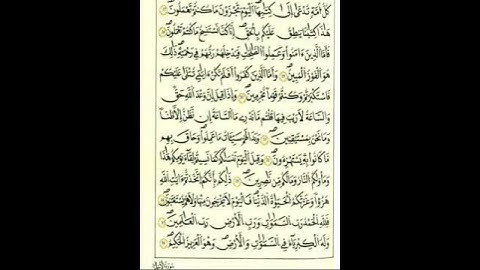 كُلُّ أُمَّةٍ تُدْعَىٰٓ إِلَىٰ كِتَٰبِهَا ٱلْيَوْمَ تُجْزَوْنَ مَا كُنتُمْ تَعْمَلُونَ ٢٨
هَٰذَا كِتَٰبُنَا يَنطِقُ عَلَيْكُم بِٱلْحَقِّ إِنَّا كُنَّا نَسْتَنسِخُ مَا كُنتُمْ تَعْمَلُونَ ٢٩
فَأَمَّا ٱلَّذِينَ ءَامَنُوا۟ وَعَمِلُوا۟ ٱلصَّٰلِحَٰتِ فَيُدْخِلُهُمْ رَبُّهُمْ فِى رَحْمَتِهِۦ ذَٰلِكَ
هُوَ ٱلْفَوْزُ ٱلْمُبِينُ ٣٠ وَأَمَّا ٱلَّذِينَ كَفَرُوٓا۟ أَفَلَمْ تَكُنْ ءَايَٰتِى تُتْلَىٰ عَلَيْكُمْ
فَٱسْتَكْبَرْتُمْ وَكُنتُمْ قَوْمًا مُّجْرِمِينَ ٣١ وَإِذَا قِيلَ إِنَّ وَعْدَ ٱللَّهِ حَقٌّ
وَٱلسَّاعَةُ لَا رَيْبَ فِيهَا قُلْتُم مَّا نَدْرِى مَا ٱلسَّاعَةُ إِن نَّظُنُّ إِلَّا ظَنًّا
وَمَا نَحْنُ بِمُسْتَيْقِنِينَ ٣٢ وَبَدَا لَهُمْ سَيِّـَٔاتُ مَا عَمِلُوا۟ وَحَاقَ بِهِم
مَّا كَانُوا۟ بِهِۦ يَسْتَهْزِءُونَ ٣٣ وَقِيلَ ٱلْيَوْمَ نَنسَىٰكُمْ كَمَا نَسِيتُمْ لِقَآءَ يَوْمِكُمْ هَٰذَا
وَمَأْوَىٰكُمُ ٱلنَّارُ وَمَا لَكُم مِّن نَّٰصِرِينَ ٣٤ ذَٰلِكُم بِأَنَّكُمُ ٱتَّخَذْتُمْ ءَايَٰتِ ٱللَّهِ
هُزُوًا وَغَرَّتْكُمُ ٱلْحَيَوٰةُ ٱلدُّنْيَا فَٱلْيَوْمَ لَا يُخْرَجُونَ مِنْهَا وَلَا هُمْ يُسْتَعْتَبُونَ ٣٥
فَلِلَّهِ ٱلْحَمْدُ رَبِّ ٱلسَّمَٰوَٰتِ وَرَبِّ ٱلْأَرْضِ رَبِّ ٱلْعَٰلَمِينَ ٣٦
وَلَهُ ٱلْكِبْرِيَآءُ فِى ٱلسَّمَٰوَٰتِ وَٱلْأَرْضِ وَهُوَ ٱلْعَزِيزُ ٱلْحَكِيمُ ٣٧